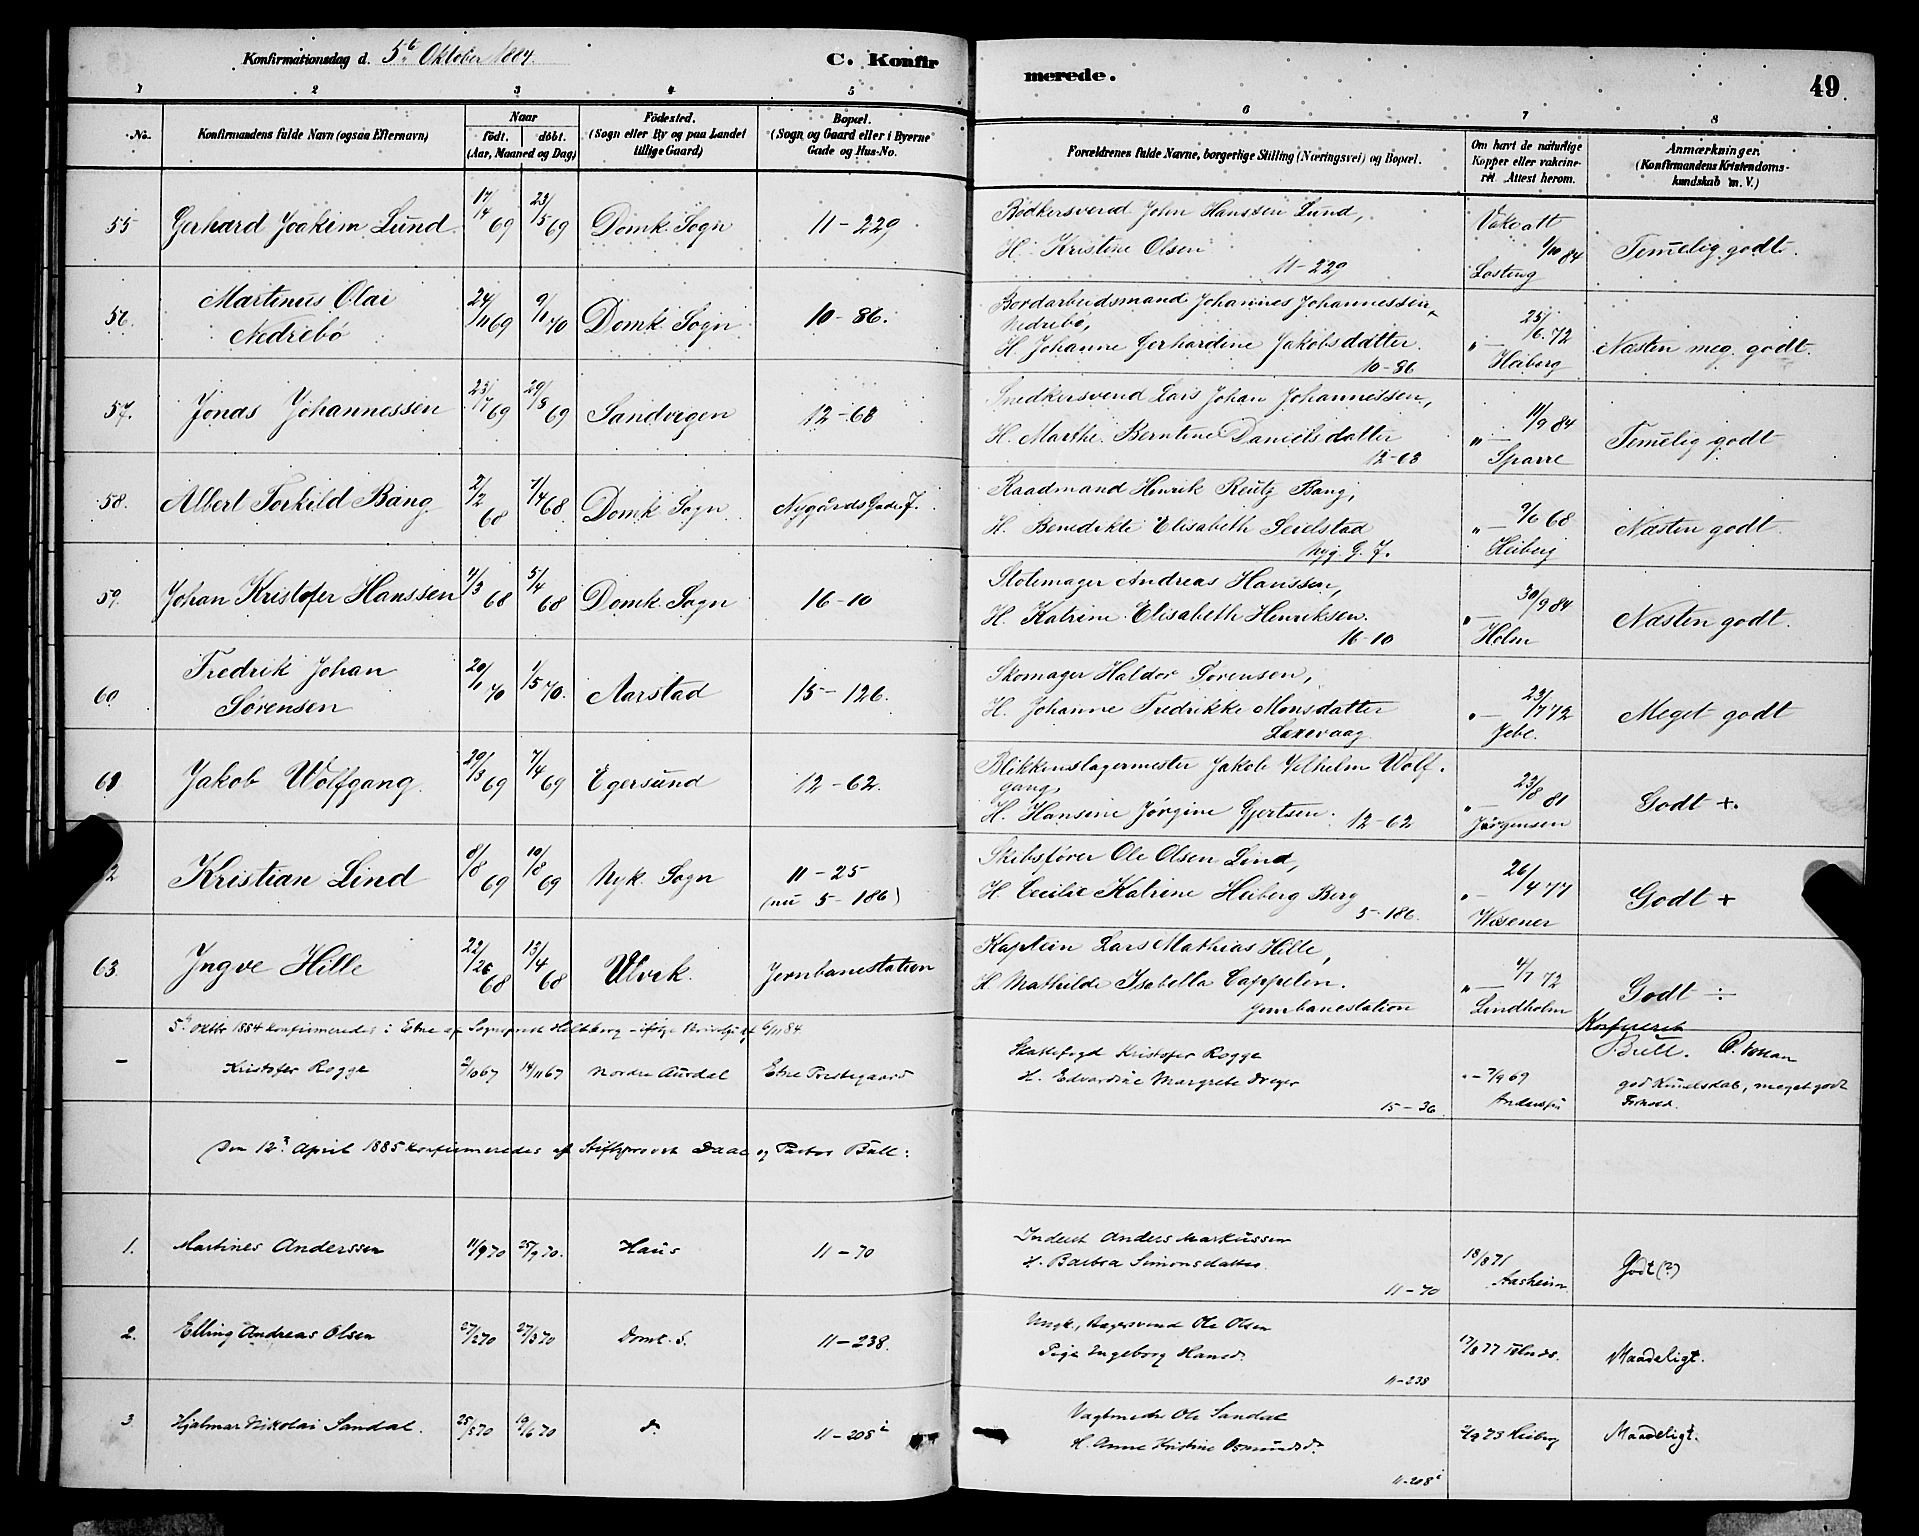 Konfirmationsdag d. 5te Oktober 1884.
C. Konfir
merede.
49
1 2 3 4 5
6 7 8
No. Konfirmandens fulde Navn (ogsaa Efternavn) Naar födt. döbt. (Aar, Maaned og Dag) Födested. (Sogn eller By og paa Landet tillige Gaard) Bopæl. (Sogn og Gaard eller i Byerne Gade og Hus-No.
Forældrenes fulde Navne, borgerlige Stilling (Næringsvei) og Bopæl. Om havt de naturlige Kopper eller vakcineret. Attest herom. Anmærkninger. (Konfirmandens Kristendomskundskab m. V.)
55 Gerhard Joakim Lund 17/4 69 23/5 69 Domk. Sogn 11-229
Bødkersvend John Hanssen Lund,
H. Kristine Olsen
11-229
Vakc att
1/10 84
Temelig godt.
56. Martinus Olai
Nedrebö
24/11 69 9/1 70 Domk. Sogn 10-86.
Bordarbeidsmand Johannes Johannessen
Nedrebö,
H. Johanne Gerhardine Jakobsdatter
10-86
" — 25/6 72
Heiberg
Næsten meg. godt.
57. Jonas Johannessen 23/7 69 29/8 69 Sandvigen 12-63
Snedkersvend Lars Johan Johannessen,
H. Marthe Berntine Danielsdatter
12-63
" — 11/9 84
Sparre
Temelig godt
58. Albert Torkild Bang 2/2 68 7/4 68 Domk. Sogn Nygårds Gade 7.
Raadmand Henrik Reutz Bang,
H. Benedikte Elisabeth Seielstad
Nyg. G. 7.
" — 9/6 68
Heiberg
Næsten godt
59. Johan Kristofer Hanssen 11/3 68 5/4 68 Domk. Sogn 16-10
Stolemager Andreas Hanssen,
H. Katrine Elisabeth Henriksen.
16-10
" — 30/9 84
Holm
Næsten godt.
60 Fredrik Johan
Sörensen
20/1 70 1/5 70. Aarstad 15-126.
Skomager Haldor Sörensen,
H. Johanne Fredrikke Monsdatter
Laxevaag
" — 23/7 72
Jebe.
Meget godt
61 Jakob Wolfgang 20/3 69 7/4 69 Egersund 12-62.
Blikkenslagermester Jakob Vilhelm Wolf-
gang,
H. Hansine Jörgine Gjertsen. 12-62
" — 23/8 81
Jörgensen
Godt +.
2 Kristian Lind 8/8 69 10/8 69 Nyk. Sogn 11-25
(nu 5-186)
Skibsförer Ole Olsen Lind,
H. Cecilie Katrine Heiberg Berg
5-186.
" — 26/4 77
Wesener
Godt +
63. Ingve Hille 22/26 68 13/4 68 Ulvik. Jernbanestation
Kaptein Lars Mathias Hille,
H. Mathilde Isabella Cappelen.
Jernbanestation
" — 4/7 72
Lindholm
Godt ÷
5te Oktbr 1884 konfirmeredes i Etne af Sogneprest
6/11 84
— Kristofer Rogge 2/10 67 14/11 67 Nordre Aurdal Etne Prestegaard
Skattefogd Kristofer Rogge
H. Edvardine Margrete Dreyer
15-36
" — 7/9 69
Bull.
god Kundskab, meget godt
Forhold.
Den 12te April 1885 konfirmeredes af Stiftsprovst Daae og Pastor Bull:
1. Martines Anderssen 11/9 70 25/9 70. Haus 11-70
Inderst Anders Markussen
H. Barbra Simonsdatter.
11-70
18/8 71
Aasheim
Godt (?)
2. Elling Andreas Olsen 27/2 70 27/3 70 Domk. S. 11-238.
Ungk., Ole Olsen
Pige Ingeborg Hansd.
11-238
17/8 77
Maadeligt.
3 Hjalmar Nikolai Sandal. 25/5 70 19/6 70 do. 11-208
Ole Sandal
H. Anne Kristine Osmundsd.
11-208
2/9 73 Heiberg
Maadeligt.